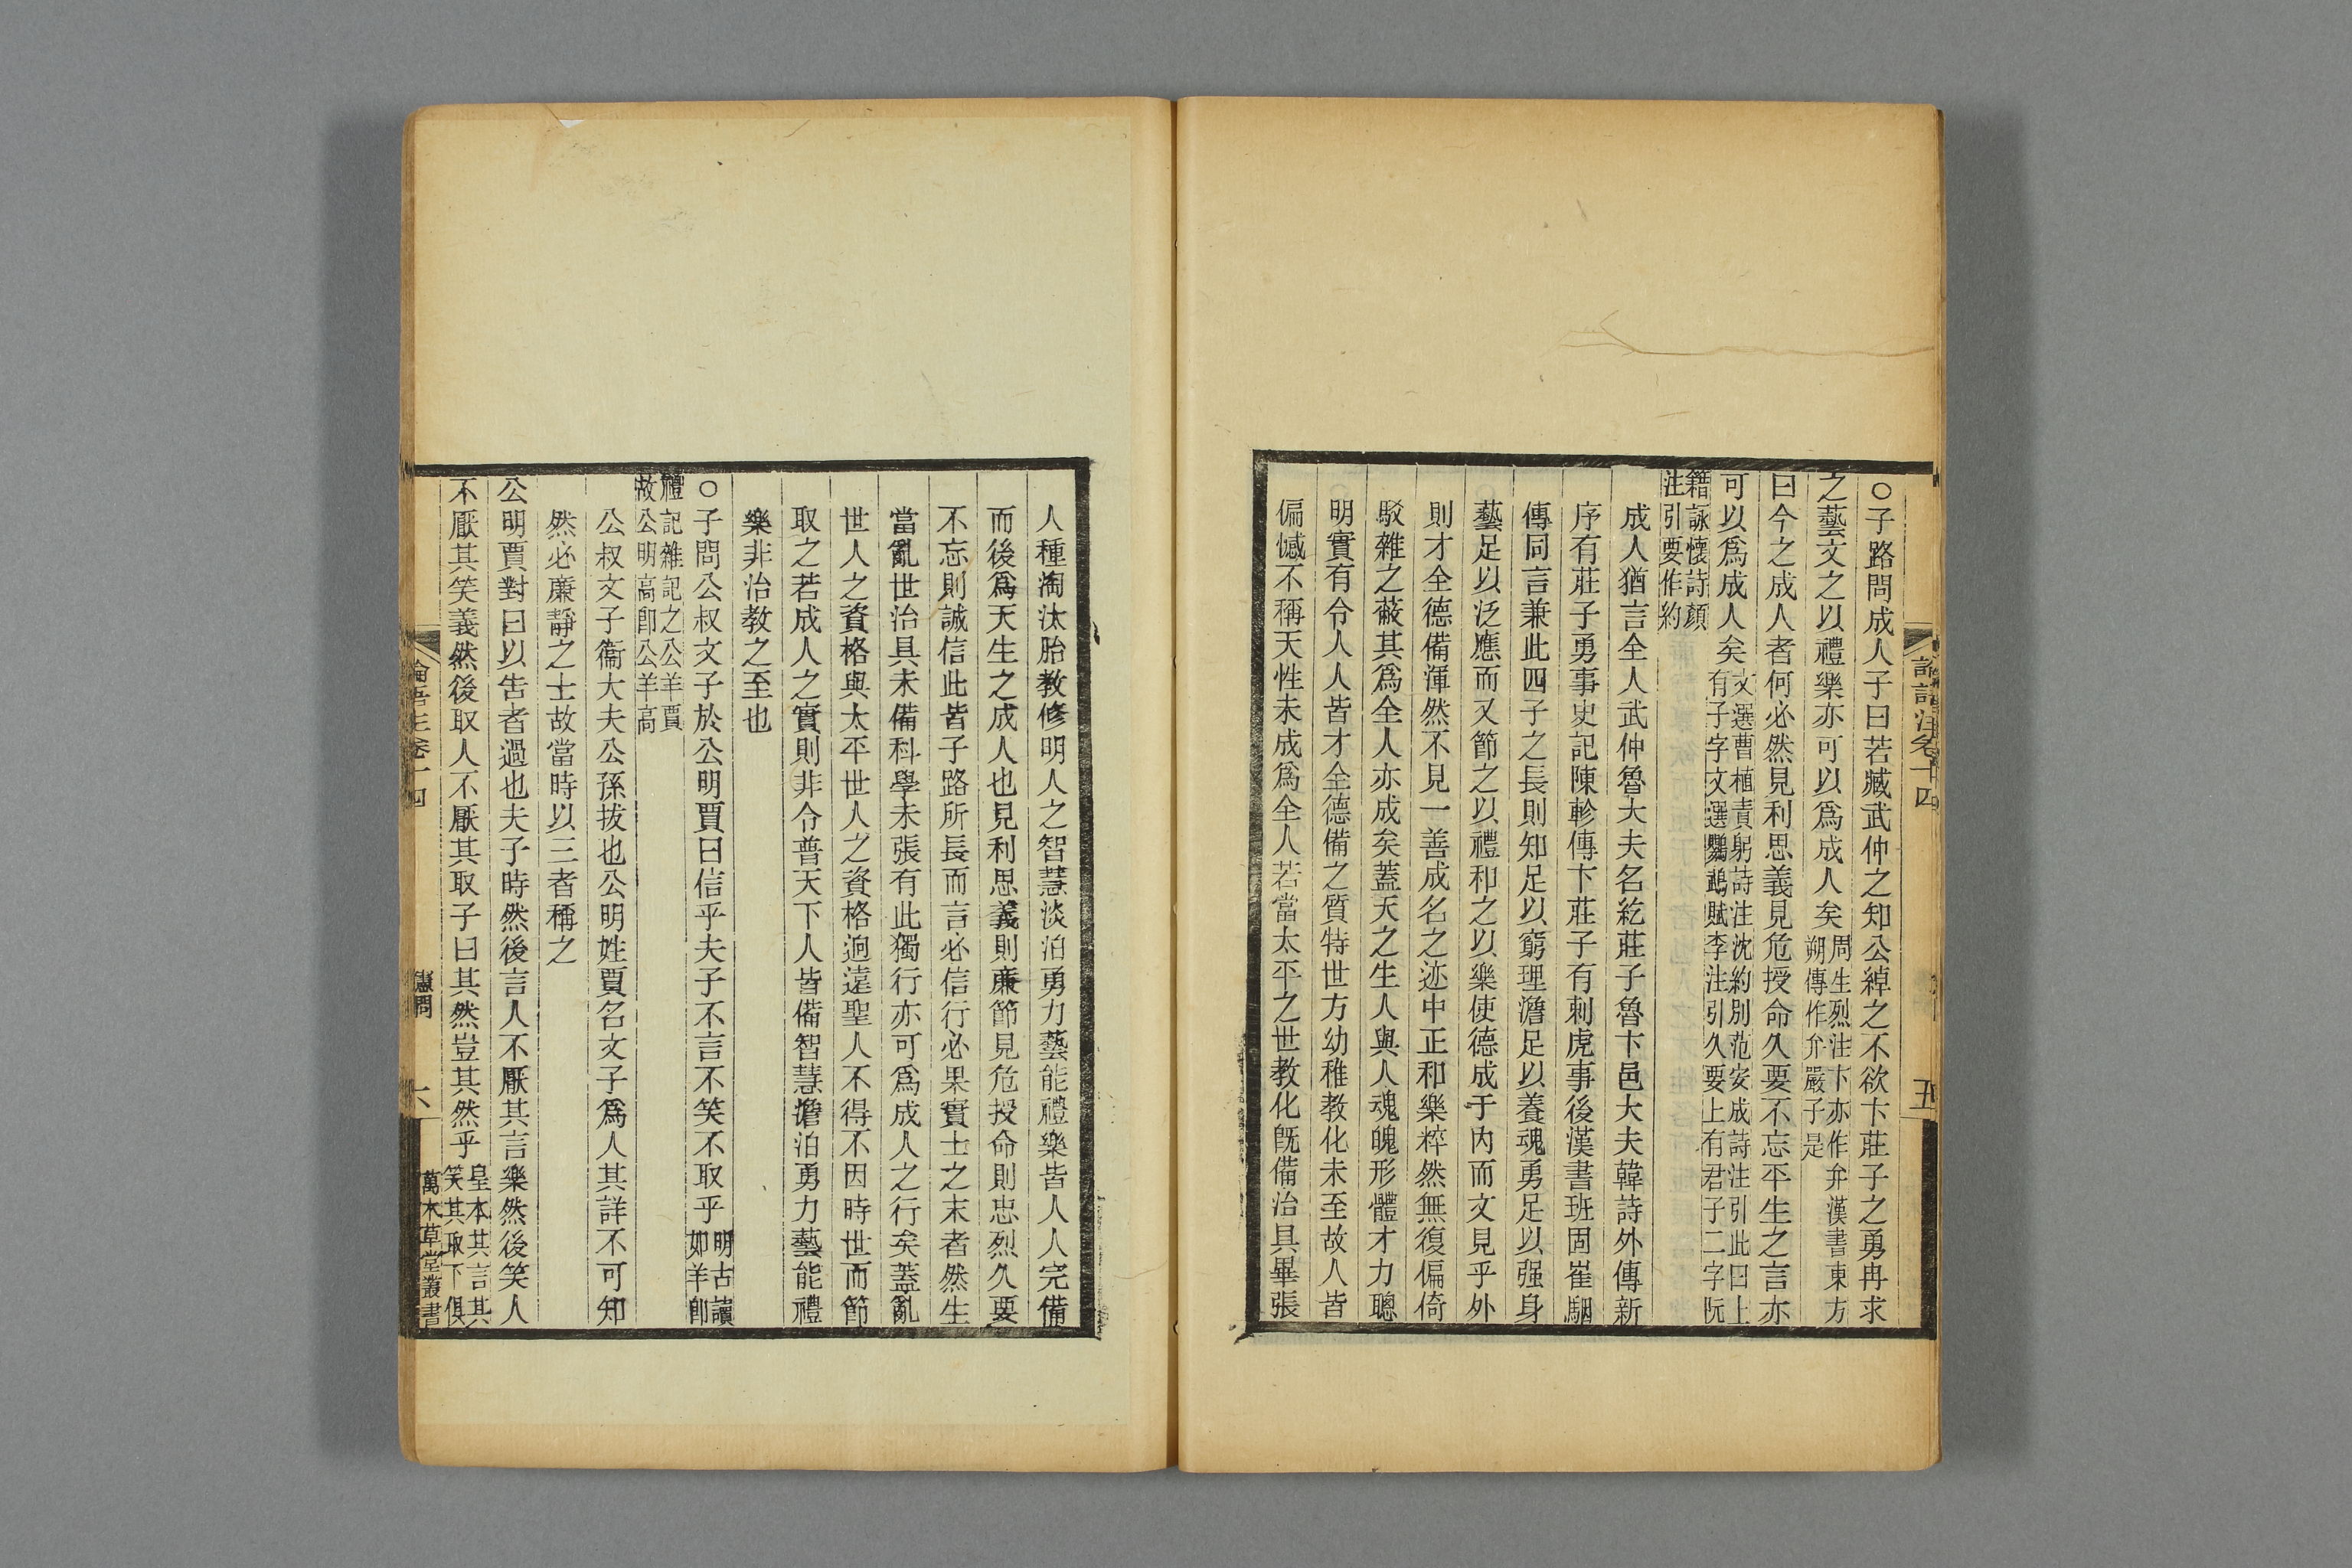 論語注卷十四
五
○子路問成人子曰若臧武仲之知公綽之不欲卞莊子之勇冉求
之藝文之以禮樂亦可以爲成人矣周生烈注卞亦作弁漢書東方
朔傳作弁嚴子是
曰今之成人者何必然見利思義見危授命久要不忘平生之言亦
可以爲成人矣文選曹植責躬詩注沈約別范安成詩注引此曰上
有子字文選鸚鵡賦李注引久要上有君子二字阮
籍詠懷詩顏
注引要作約
成人猶言全人武仲魯大夫名紇莊子魯卞邑大夫韓詩外傳新
序有莊子勇事史記陳軫傳卞莊子有刺虎事後漢書班固崔駰
傳同言兼此四子之長則知足以窮理澹足以養魂勇足以强身
藝足以泛應而又節之以禮和之以樂使德成于內而文見乎外
則才全德備渾然不見一善成名之迹中正和樂粹然無復偏倚
駁雜之蔽其爲全人亦成矣蓋天之生人與人魂魄形體才力聰
明實有令人人皆才全德備之質特世方幼稚教化未至故人皆
偏憾不稱天性未成爲全人若當太平之世教化旣備治具畢張
人種淘汰胎教修明人之智慧淡泊勇力藝能禮樂皆人人完備
而後爲天生之成人也見利思義則廉節見危授命則忠烈久要
不忘則誠信此皆子路所長而言必信行必果實士之末者然生
當亂世治具未備科學未張有此獨行亦可爲成人之行矣蓋亂
世人之資格與太平世人之資格迥遠聖人不得不因時世而節
取之若成人之實則非令普天下人皆備智慧澹泊勇力藝能禮
樂非治教之至也
○子問公叔文子於公明賈曰信乎夫子不言不笑不取乎明古讀
如羊卽
禮記雜記之公羊賈
故公明高卽公羊高
公叔文子衞大夫公孫拔也公明姓賈名文子爲人其詳不可知
然必廉靜之士故當時以三者稱之
公明賈對曰以告者過也夫子時然後言人不厭其言樂然後笑人
不厭其笑義然後取人不厭其取子曰其然豈其然乎皇本其言其
笑其取下俱
論語注卷十四
憲問
六
萬木草堂叢書